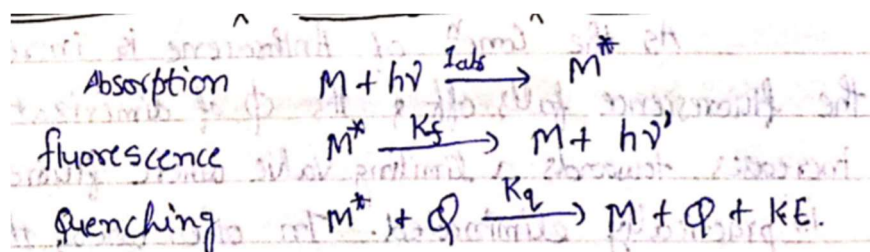 Absorption M + hν —Iabs→ M*
fluorescence M* —Kf→ M + hν'
Quenching M* + Q —Kq→ M + Q + KE.